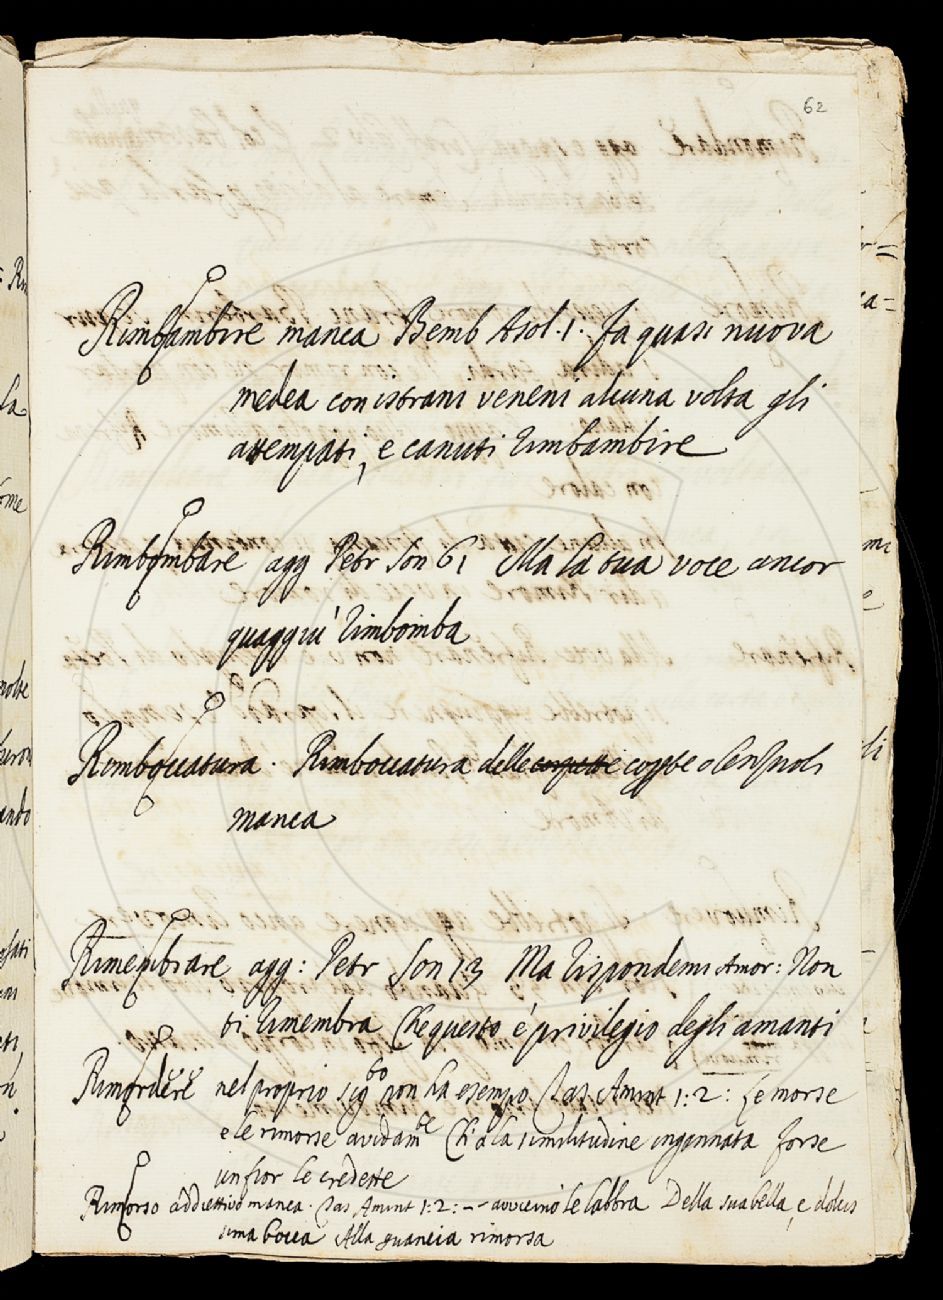 62
Rimbambire manca Bemb Asol. 1. Fa quasi nuova
medea con istrani veneni alcuna volta gli
attempati, e canuti rimbambire
Rimbombare agg Petr Son 61 Ma la tua voce ancor
quaggiù rimbomba
Rimboccatura. Rimboccatura delle coppte o lenzuoli
manca
Rimembrare agg: Petr Son 13 Ma rispondemi Amor: Non
ti rimembra Che questo è privilegio degli amanti
Rimordere nel proprio sigto non ha esempo Tas Amint 1:2: Le morse
e le rimorse avidamte Ch'a la similitudine ingannata forse
un fior le credette
Rimorso addiettivo manca. Tas Amint 1:2: -- avvicinò le labbra Della sua bella, e dolcis
sima bocca Alla guancia rimorsa